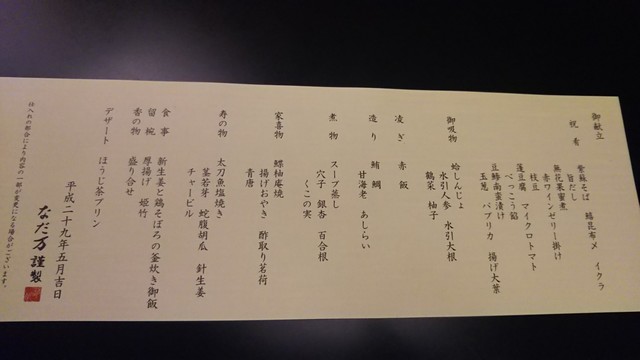 御献立
祝肴 紫蘇そば 鱚昆布〆 イクラ
旨だし
無花果蜜煮
赤ワインゼリー掛け
枝豆
蓮豆腐 マイクロトマト
べっこう餡
豆鯵南蛮漬け
玉葱 パプリカ 揚げ大葉
御吸物 蛤しんじょ
水引人参 水引大根
鶴菜 柚子
凌ぎ 赤飯
造り 鮪 鯛
甘海老 あしらい
煮物 スープ蒸し
穴子 銀杏 百合根
くこの実
家喜物 鰈柚庵焼
揚げおやき 酢取り茗荷
青唐
寿の物 太刀魚塩焼き
茎若芽 蛇腹胡瓜 針生姜
チャービル
食事 新生姜と鶏そぼろの釜炊き御飯
留椀 厚揚げ 姫竹
香の物 盛り合せ
デザート ほうじ茶プリン
平成二十九年五月吉日
なだ万謹製
仕入れの都合により内容の一部が変更になる場合がございます。